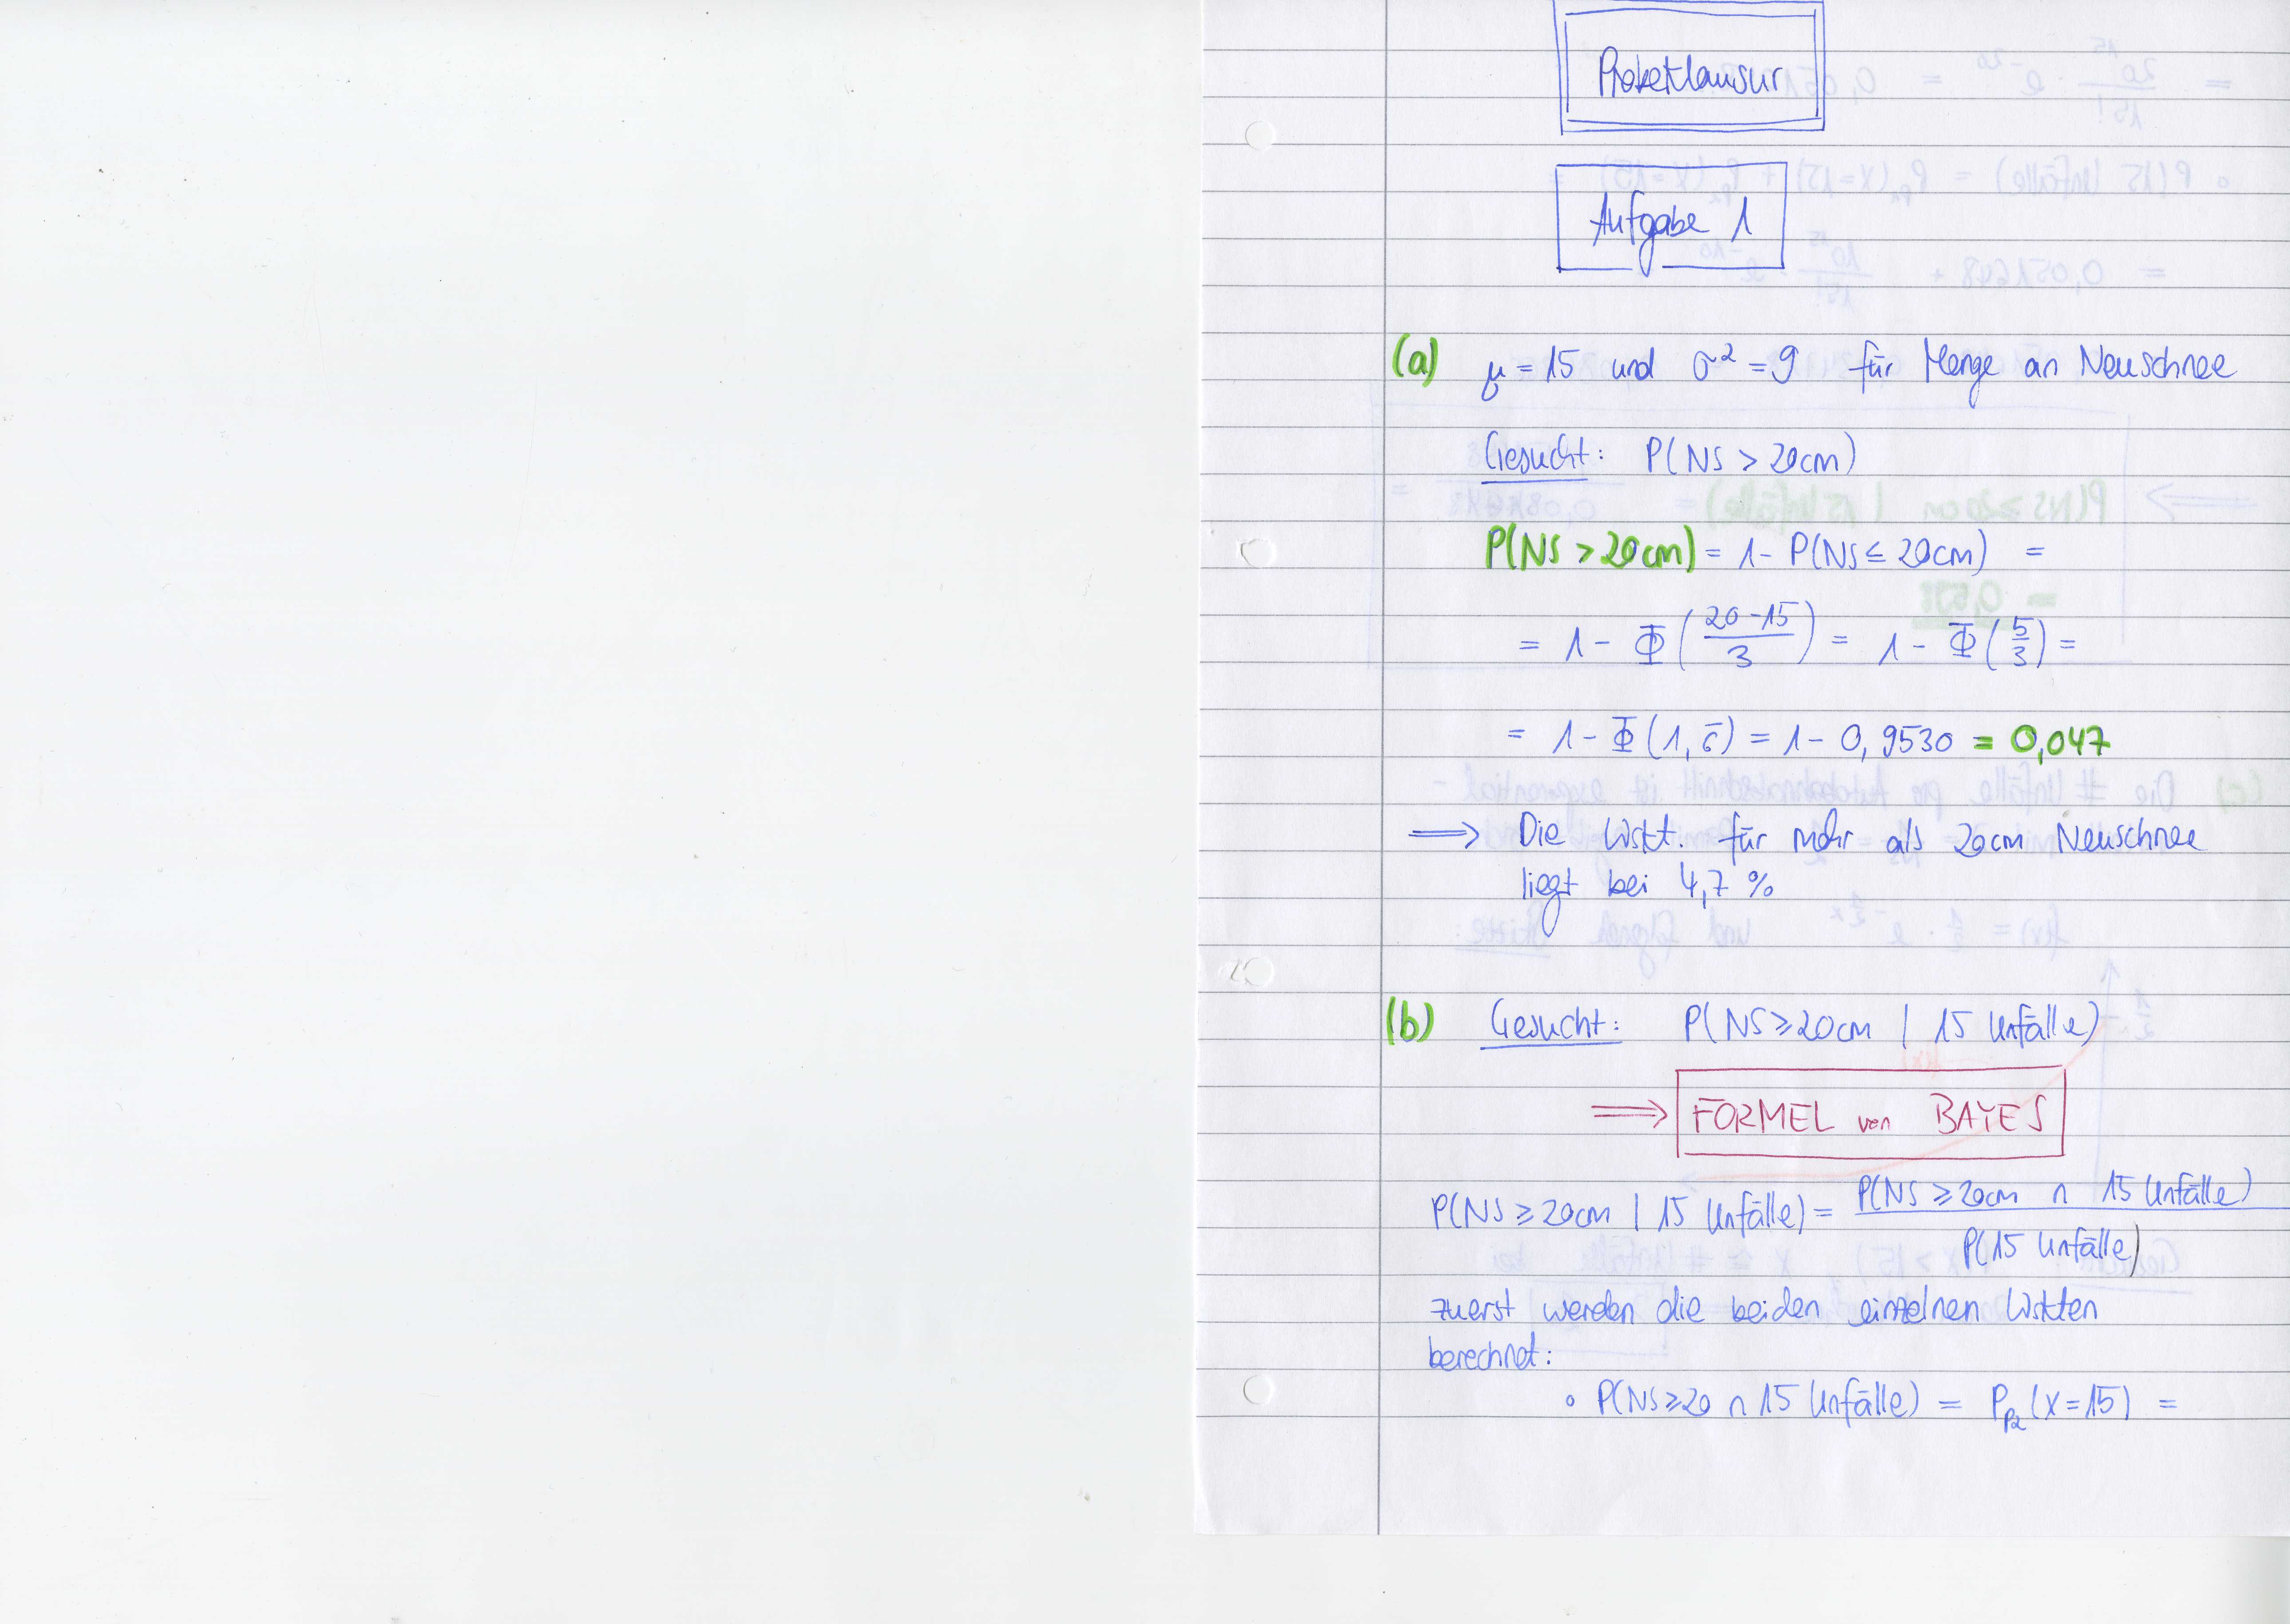 Probeklausur
Aufgabe 1
(a) μ = 15 und σ² = 9 für Menge an Neuschnee
Gesucht: P(NS > 20cm)
P(NS > 20cm) = 1 - P(NS ≤ 20cm) =
= 1 - Φ((20-15)/3) = 1 - Φ(5/3) =
= 1 - Φ(1,6̅) = 1 - 0,9530 = 0,047
⟹ Die Wskt. für mehr als 20cm Neuschnee
liegt bei 4,7 %
(b) Gesucht: P(NS ≥ 20cm | 15 Unfälle)
⟹ FORMEL von BAYES
P(NS ≥ 20cm | 15 Unfälle) = P(NS ≥ 20cm ∩ 15 Unfälle) / P(15 Unfälle)
zuerst werden die beiden einzelnen Wskten
berechnet:
∘ P(NS ≥ 20 ∩ 15 Unfälle) = P_P₂(X = 15) =